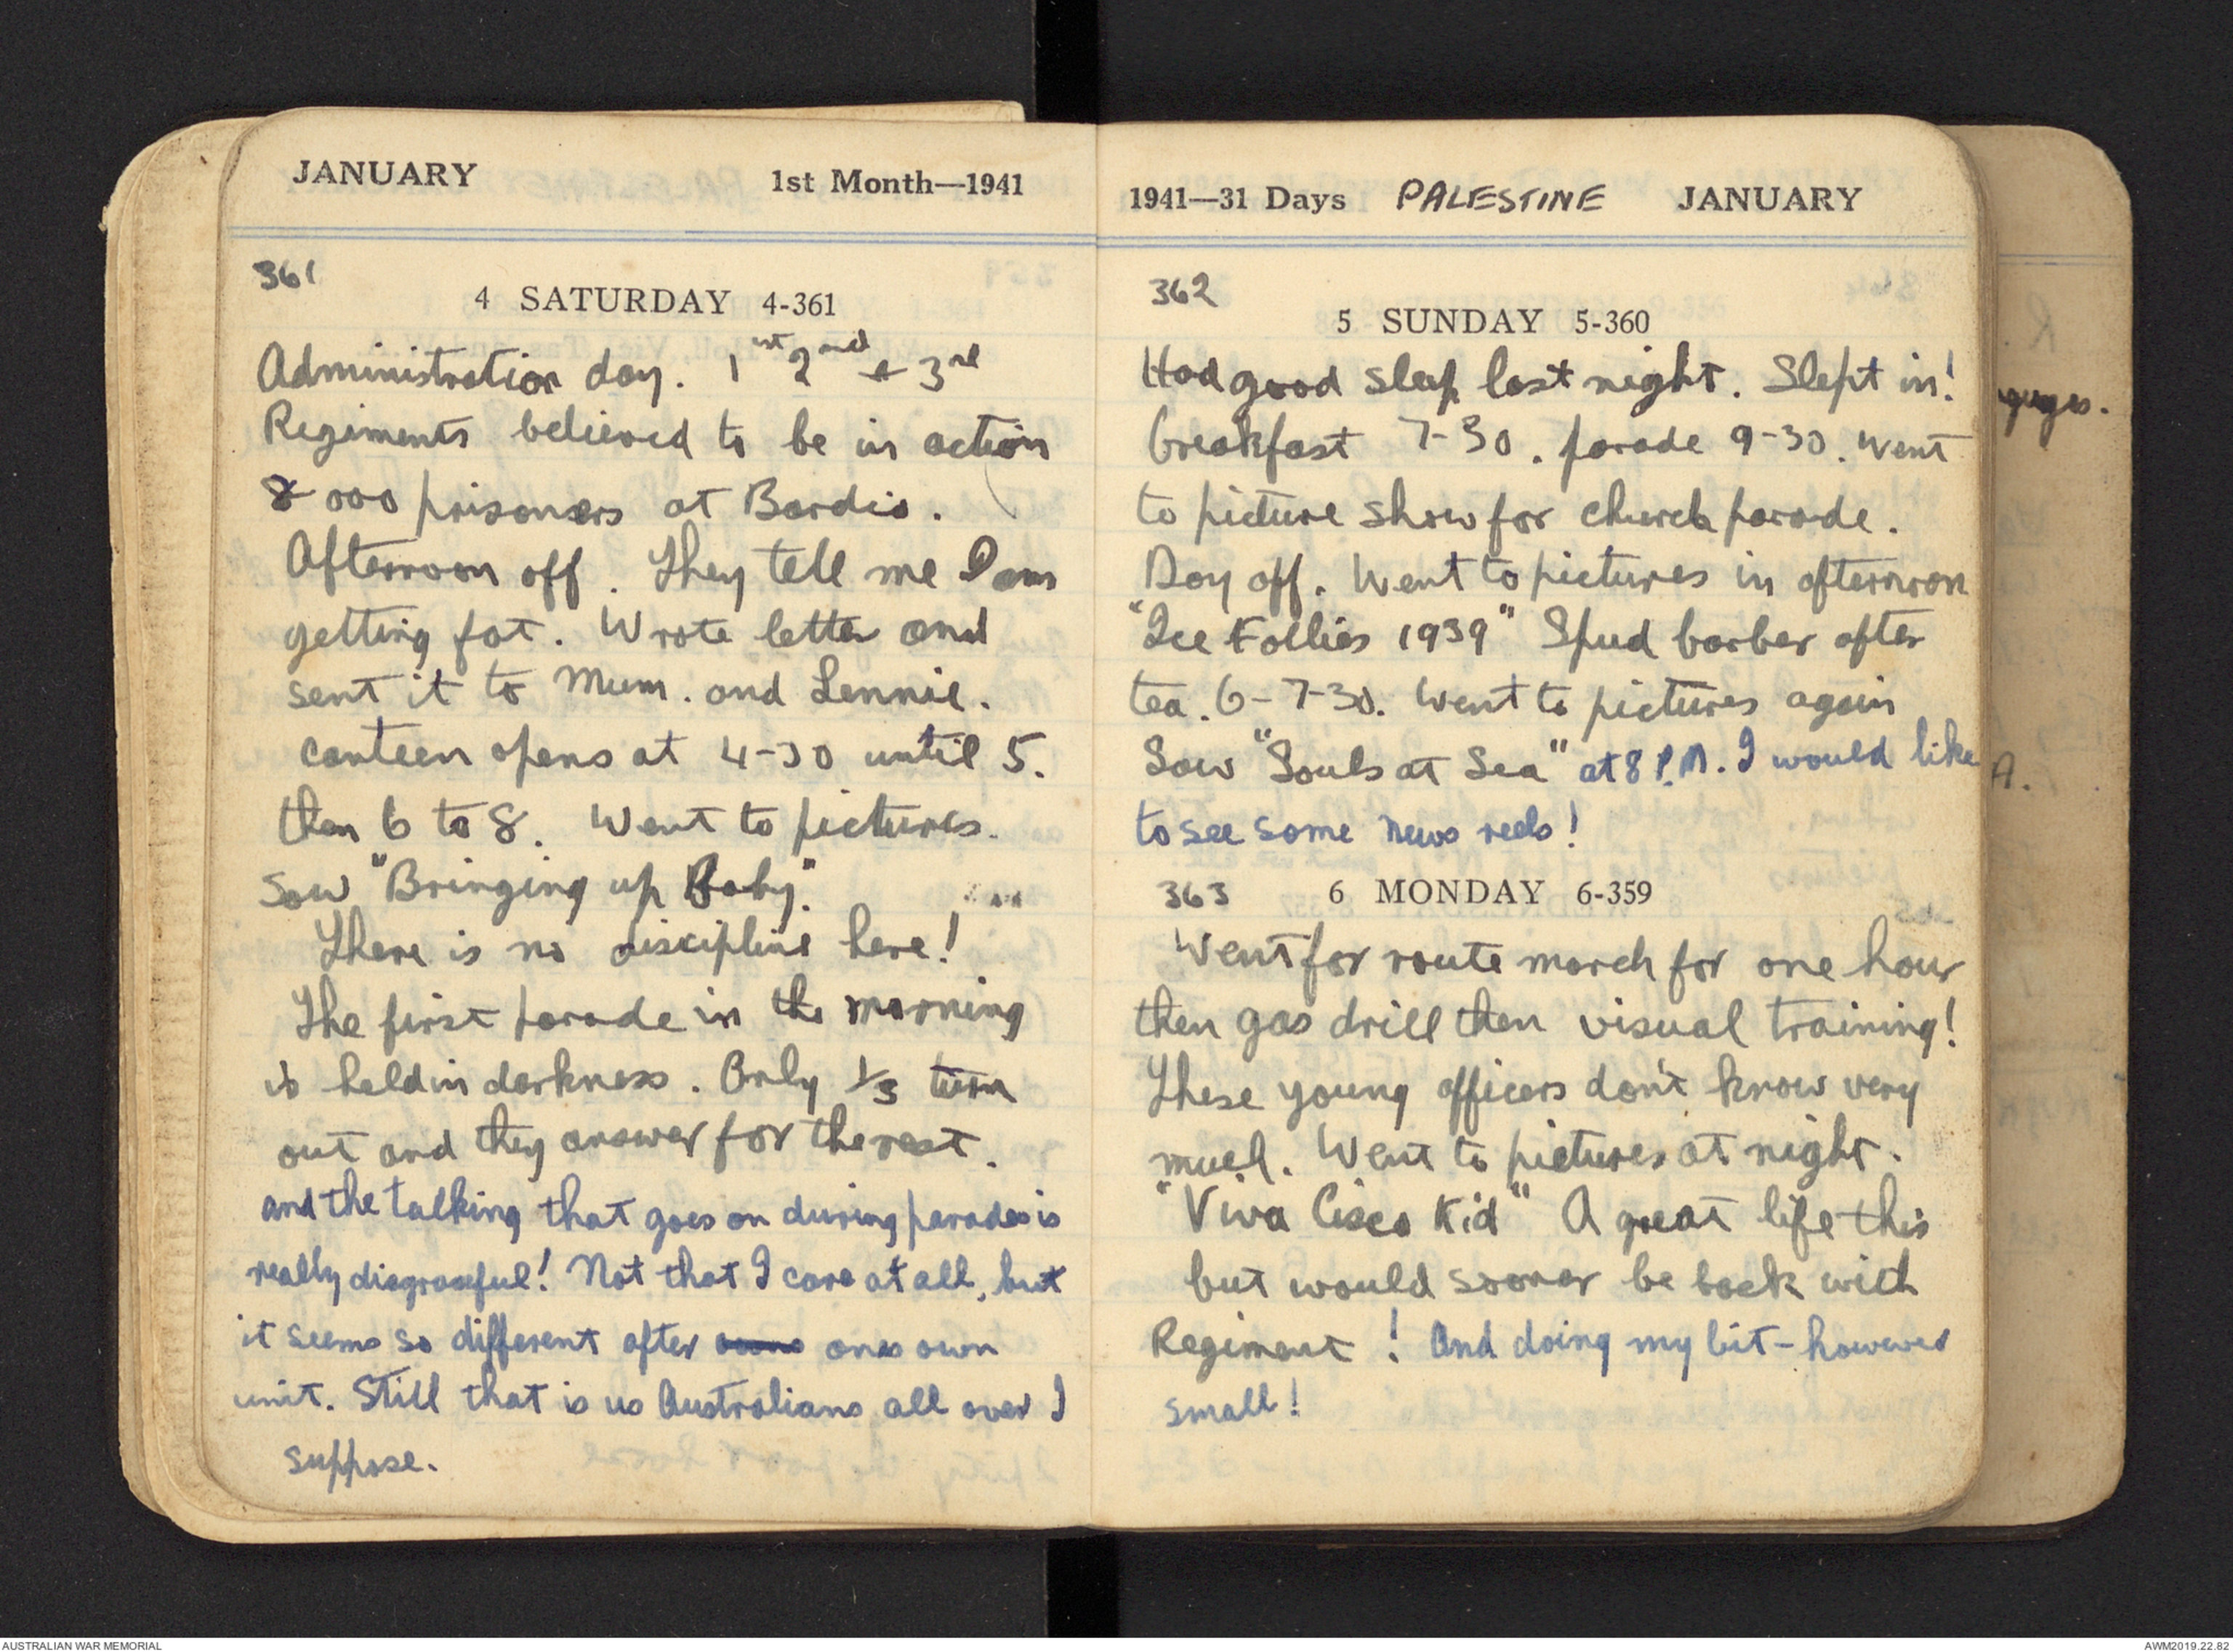 JANUARY 1st Month—1941
361
4 SATURDAY 4-361
Administration day. 1st 2nd + 3rd
Regiments believed to be in action
8000 prisoners at Bardia.
Afternoon off. They tell me I am
getting fat. Wrote letter and
sent it to Mum. and Lennie.
canteen opens at 4-30 until 5.
then 6 to 8. Went to pictures.
Saw "Bringing up Baby".
There is no discipline here!
The first parade in the morning
is held in darkness. Only 1/3 turn
out and they answer for the rest.
and the talking that goes on during parades is
really disgraceful! Not that I care at all, but
it seems so different after ones own
unit. Still that is us Australians all over I
suppose.
1941—31 Days PALESTINE JANUARY
362
5 SUNDAY 5-360
Had good sleep last night. Slept in!
breakfast 7-30. parade 9-30. Went
to picture show for church parade.
Day off. Went to pictures in afternoon
"Ice Follies 1939" Spud barber after
tea. 6-7-30. Went to pictures again
Saw "Souls at Sea" at 8 P.M. I would like
to see some news reels!
363 6 MONDAY 6-359
Went for route march for one hour
then gas drill then visual training!
These young officers don't know very
much. Went to pictures at night.
"Viva Cisco Kid" A great life this
but would sooner be back with
Regiment! And doing my bit - however
small!
A.
AUSTRALIAN WAR MEMORIAL AWM2019.22.82